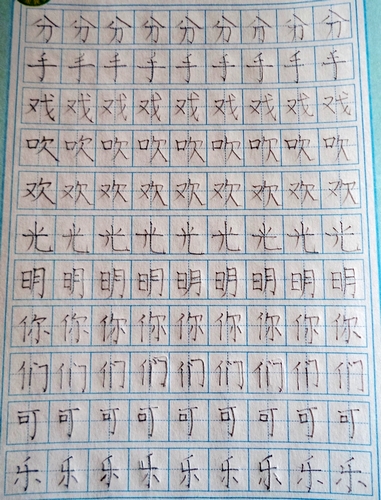 分分分分分分分分分
手手手手手手手手手
戏戏戏戏戏戏戏戏戏
吹吹吹吹吹吹吹吹吹
欢欢欢欢欢欢欢欢欢
光光光光光光光光光
明明明明明明明明明
你你你你你你你你你
们们们们们们们们们
可可可可可可可可可
乐乐乐乐乐乐乐乐乐